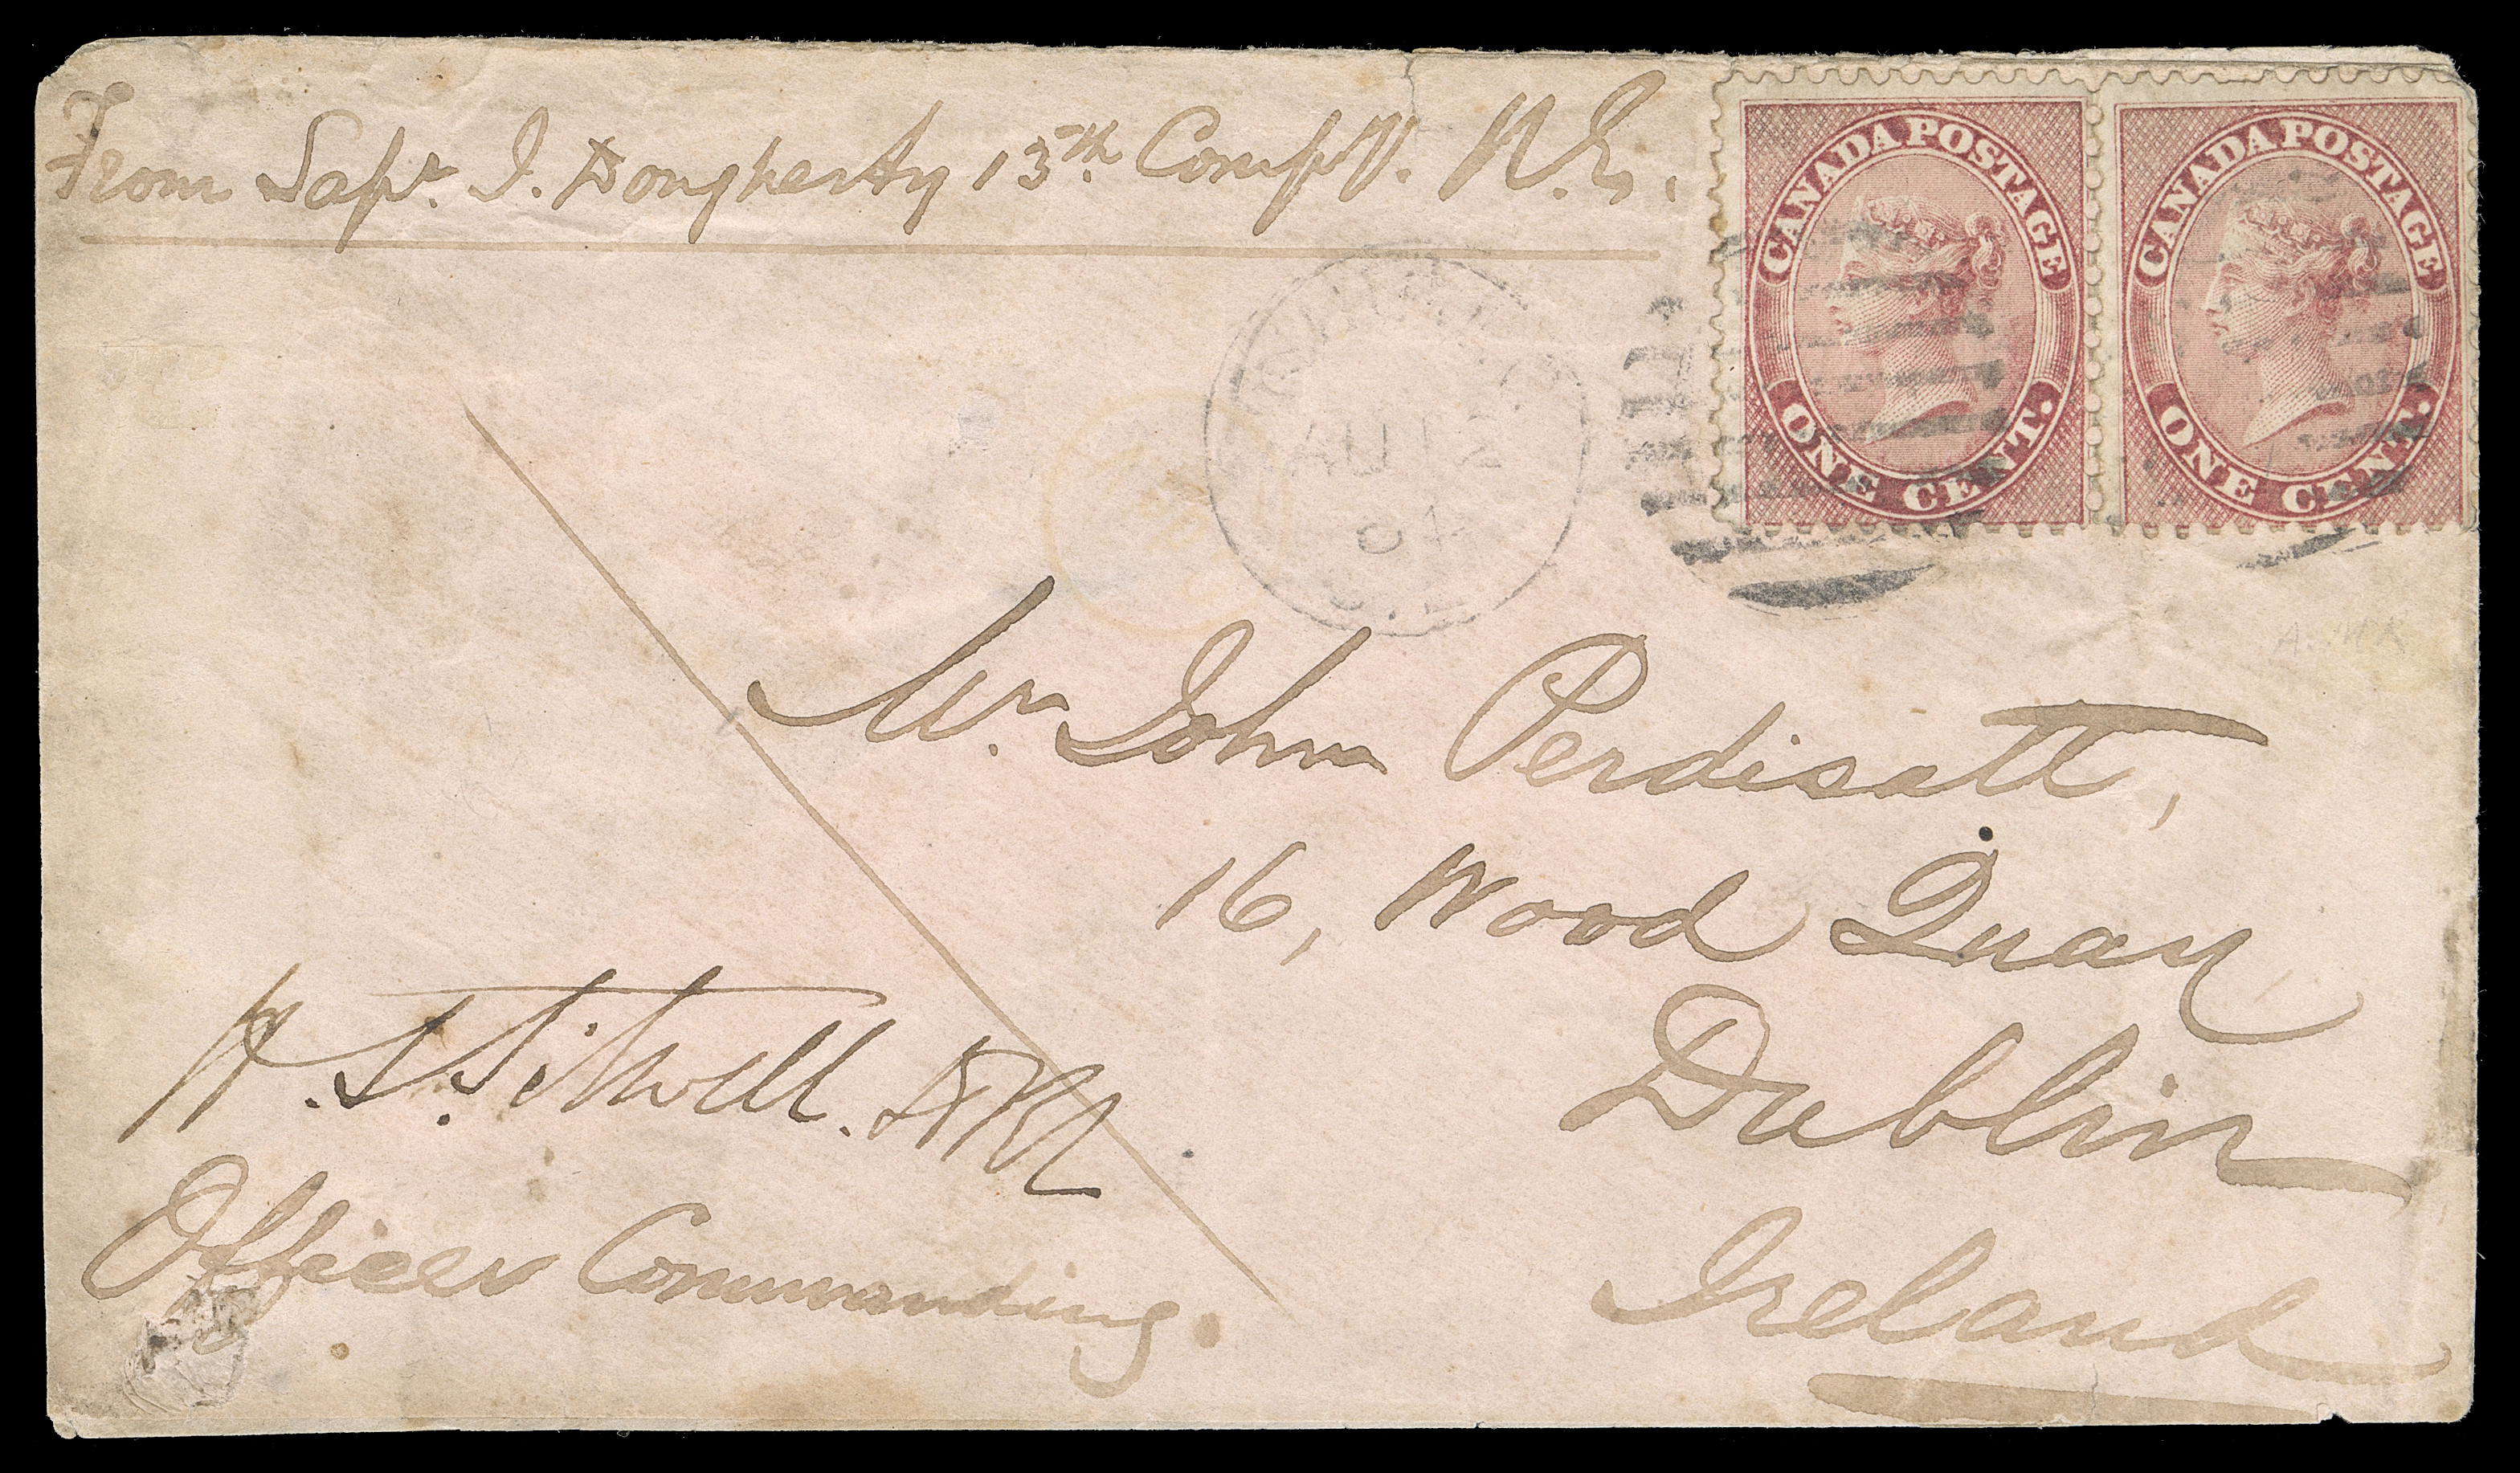 From Sapr. J. Dougherty 13th Compy. R.E.
CANADA POSTAGE
ONE CENT.
CANADA POSTAGE
ONE CENT.
AU 12
Mr. John Perdisatt,
16, Wood Quay
Dublin
Ireland
H. S. Sitwell.
Officer Commanding.